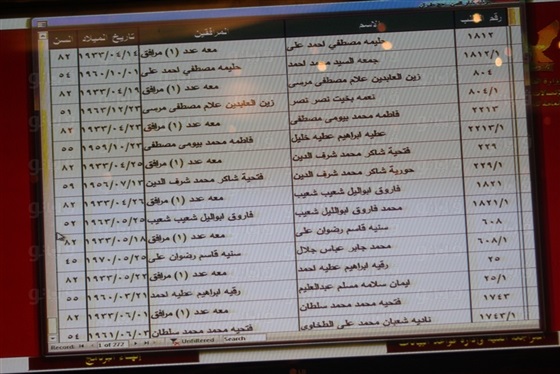 رقم الطلب الاسم المرافقين تاريخ الميلاد السن
١٨١٢ حليمه مصطفي احمد على معه عدد (١) مرافق ١٩٣٣/٠٤/١٤ ٨٢
١٨١٢/١ جمعه السيد محمد احمد حليمه مصطفي احمد على ١٩٦٠/١٠/٠١ ٥٤
٨٠٤ زين العابدين علام مصطفى مرسى معه عدد (١) مرافق ١٩٣٣/٠٤/١٩ ٨٢
٨٠٤/١ نعمه بخيت نصر نصر زين العابدين علام مصطفى مرسى ١٩٦٣/١٢/٢٣ ٥١
٢٢١٣ فاطمه محمد بيومى مصطفى معه عدد (١) مرافق ١٩٣٣/٠٤/٢٣ ٨٢
٢٢١٣/١ عطيه ابراهيم عطيه خليل فاطمه محمد بيومى مصطفى ١٩٥٩/١٠/٢٣ ٥٥
٢٢٩ فتحية شاكر محمد شرف الدين معه عدد (١) مرافق ١٩٣٣/٠٤/٢٥ ٨٢
٢٢٩/١ حورية شاكر محمد شرف الدين فتحية شاكر محمد شرف الدين ١٩٥٦/٠٧/١٢ ٥٩
١٨٢١ فاروق ابواليل شعيب شعيب معه عدد (١) مرافق ١٩٣٣/٠٤/٢٦ ٨٢
١٨٢١/١ محمد فاروق ابوالليل شعيب فاروق ابواليل شعيب شعيب ١٩٦٣/٠٥/٢٥ ٥٢
٦٠٨ سنيه قاسم رضوان على معه عدد (١) مرافق ١٩٣٣/٠٥/١٨ ٨٢
٦٠٨/١ محمد جابر عباس جلال سنيه قاسم رضوان على ١٩٧٠/٠٥/٢٥ ٤٥
٢٥ رقيه ابراهيم عطيه احمد معه عدد (١) مرافق ١٩٣٣/٠٥/٢٢ ٨٢
٢٥/١ ايمان سلامه مسلم عبدالعليم رقيه ابراهيم عطيه احمد ١٩٦٠/٠٢/٢١ ٥٥
١٧٤٣ فتحيه محمد محمد سلطان معه عدد (١) مرافق ١٩٣٣/٠٦/٠١ ٨٢
١٧٤٣/١ ناديه شعبان محمد على الطخاوى فتحيه محمد محمد سلطان ١٩٦١/٠٦/٠٣ ٥٤
Record: 1 of 272 Unfiltered Search